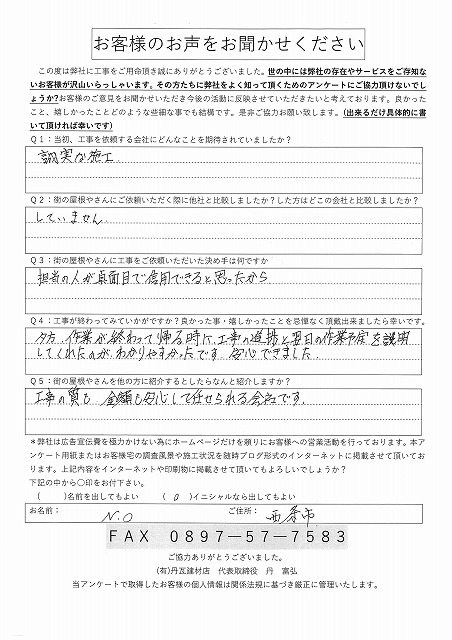 お客様のお声をお聞かせください
この度は弊社に工事をご用命頂き誠にありがとうございました。世の中には弊社の存在やサービスをご存知な
いお客様が沢山いらっしゃいます。その方たちに弊社をよく知って頂くためのアンケートにご協力頂けないでし
ょうか?お客様のご意見をお聞かせいただき今後の活動に反映させていただきたいと考えております。良かった
こと、嬉しかったことどのような些細な事でも結構です。是非ご協力お願い致します。(出来るだけ具体的に書
いて頂ければ幸いです)
Q１：当初、工事を依頼する会社にどんなことを期待されていましたか？
誠実な施工.
Q２：街の屋根やさんにご依頼いただく際に他社と比較しましたか？した方はどこの会社と比較しましたか？
していません.
Q３：街の屋根やさんに工事をご依頼いただいた決め手は何ですか
担当の人が真面目で信用できると思ったから
Q４：工事が終わってみていかがですか？良かった事・嬉しかったことを忌憚なく頂戴出来ましたら幸いです。
夕方、作業が終わって帰る時に、工事の進捗と翌日の作業予定を説明
してくれたのがわかりやすかったです. 安心できました.
Q５：街の屋根やさんを他の方に紹介するとしたらなんと紹介しますか？
工事の質も 金額も安心して任せられる会社です.
＊弊社は広告宣伝費を極力かけない為にホームページだけを頼りにお客様への営業活動を行っております。本ア
ンケート用紙またはお客様宅の調査風景や施工状況を随時ブログ形式のインターネットに掲載させて頂いてお
ります。上記内容をインターネットや印刷物に掲載させて頂いてもよろしいでしょうか？
下記の中から〇印をお付下さい。
(　　)名前を出してもよい　　(　○　)イニシャルなら出してもよい
お名前：　N.O　ご住所：　西条市
ＦＡＸ　０８９７−５７−７５８３
ご協力ありがとうございました。
(有)丹瓦建材店　代表取締役　丹　富弘
当アンケートで取得したお客様の個人情報は関係法規に基づき厳正に管理いたします。